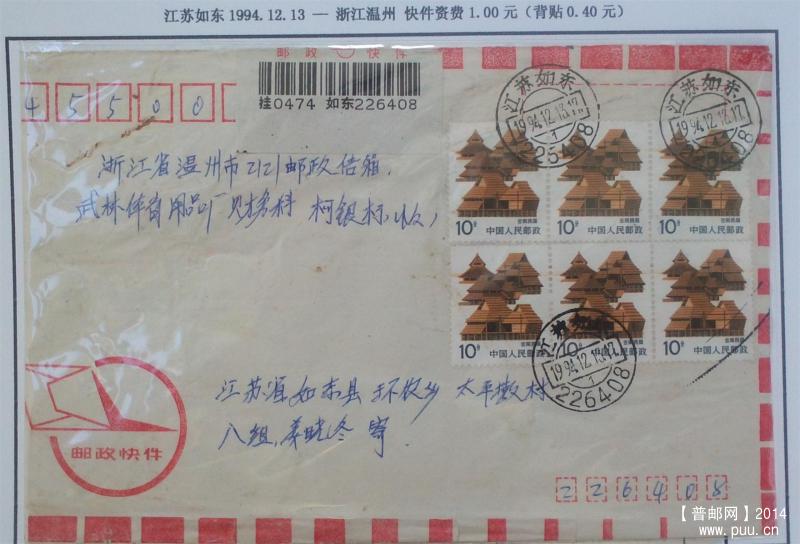 江苏如东 1994.12.13 — 浙江温州 快件资费 1.00 元（背贴 0.40 元）
邮政 快件
45500
桂0474 如东226408
江苏如东
1994.12.13.17
1
226408
江苏如东
1994.12.13.17
1
226408
浙江省温州市2121邮政信箱.
武林体育用品厂财务科 柯银标(收)
10分 云南民居 中国人民邮政
10分 云南民居 中国人民邮政
10分 云南民居 中国人民邮政
10分 中国人民邮政
10分 中国人民邮政
10分 中国人民邮政
江苏如东
1994.12.13.17
1
226408
江苏省如东县环农乡 太平墩村
八组, 晓冬 寄.
邮政快件
226408
【普邮网】2014
www.puu.cn